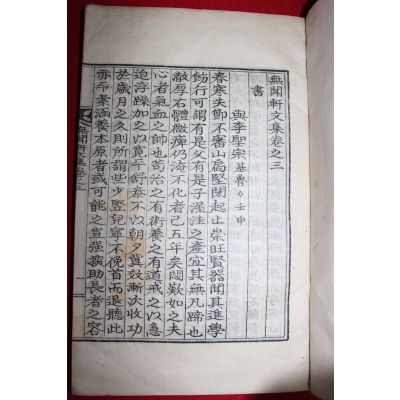 無聞軒文集卷之三
書
與李聖宗基魯○壬申
春寒失節不審山扃堅閉起止崇旺賢器聞其進學
飭行可謂有是父有是子渥洼之產宜其無凡蹄也
澈厚石體微痾仍淹不化者已五年矣悶歎如之夫
心者氣血之帥也苟治之有術養之有道戒之以急
迫浮躁加之以寬平舒泰不以朝夕冀效漸次收功
於歲月之久則所謂些少竪兒寧不俛首而退聽此
亦平素涵養本原者或可能之豈强揠助長者之容
無聞軒文集卷之三